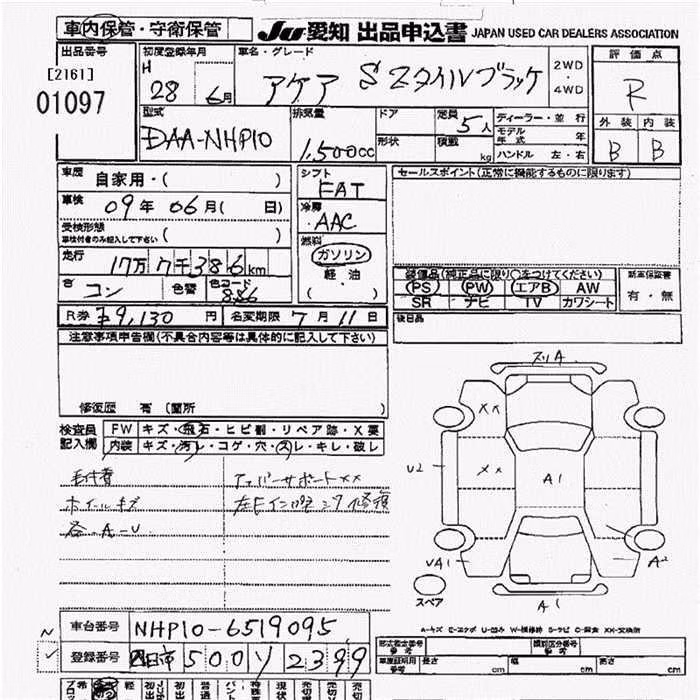 車内保管・守衛保管 JU 愛知 出品申込書 JAPAN USED CAR DEALERS ASSOCIATION
出品番号 初度登録年月 車名・グレード 評価点
[2161] H 28 6月 アケア Sスタイルブラック 2WD・4WD R
01097
型式 排気量 ドア 定員 5人 ディーラー・並 行 外装 内装
DAA-NHP10 1,500cc 形状 積載 kg モデル年式 年 B B
ハンドル 左・右
車歴 自家用・( ) シフト FAT セールスポイント(正常に機能するものに限ります)
車検 09年 06月( 日) 冷房 AAC
受検形態 車検付きのみ記入して下さい( ) 燃料 ガソリン
走行 17万7千386km 軽油 装備品(純正品に限り○をつけてください) 新車保証書
色 コン 色替 色コード 886 ( ) PS PW エアB AW 有・無
SR ナビ TV カワシート
R券 ¥9,130円 名変期限 7月11日 後日品
注意事項申告欄(不具合内容等は具体的に記入して下さい)
修復歴 有 〔箇所 〕
検査員記入欄 FW キズ・飛石・ヒビ割・リペア跡・X要
内装 キズ・汚レ・コゲ・穴・スレ・キレ・破レ
アッパーサポートXX
ホイールキズ
各-A-U
ズリA
XX
U2 XX A1
UA1 A2
スペア A1
A-キズ E-エクボ U-凹み W-補修跡 S-サビ C-腐食 XX-交換済
車台番号 NHP10-6519095
登録番号 四日市 500 ソ 2399
長さ cm 幅 cm 高さ cm